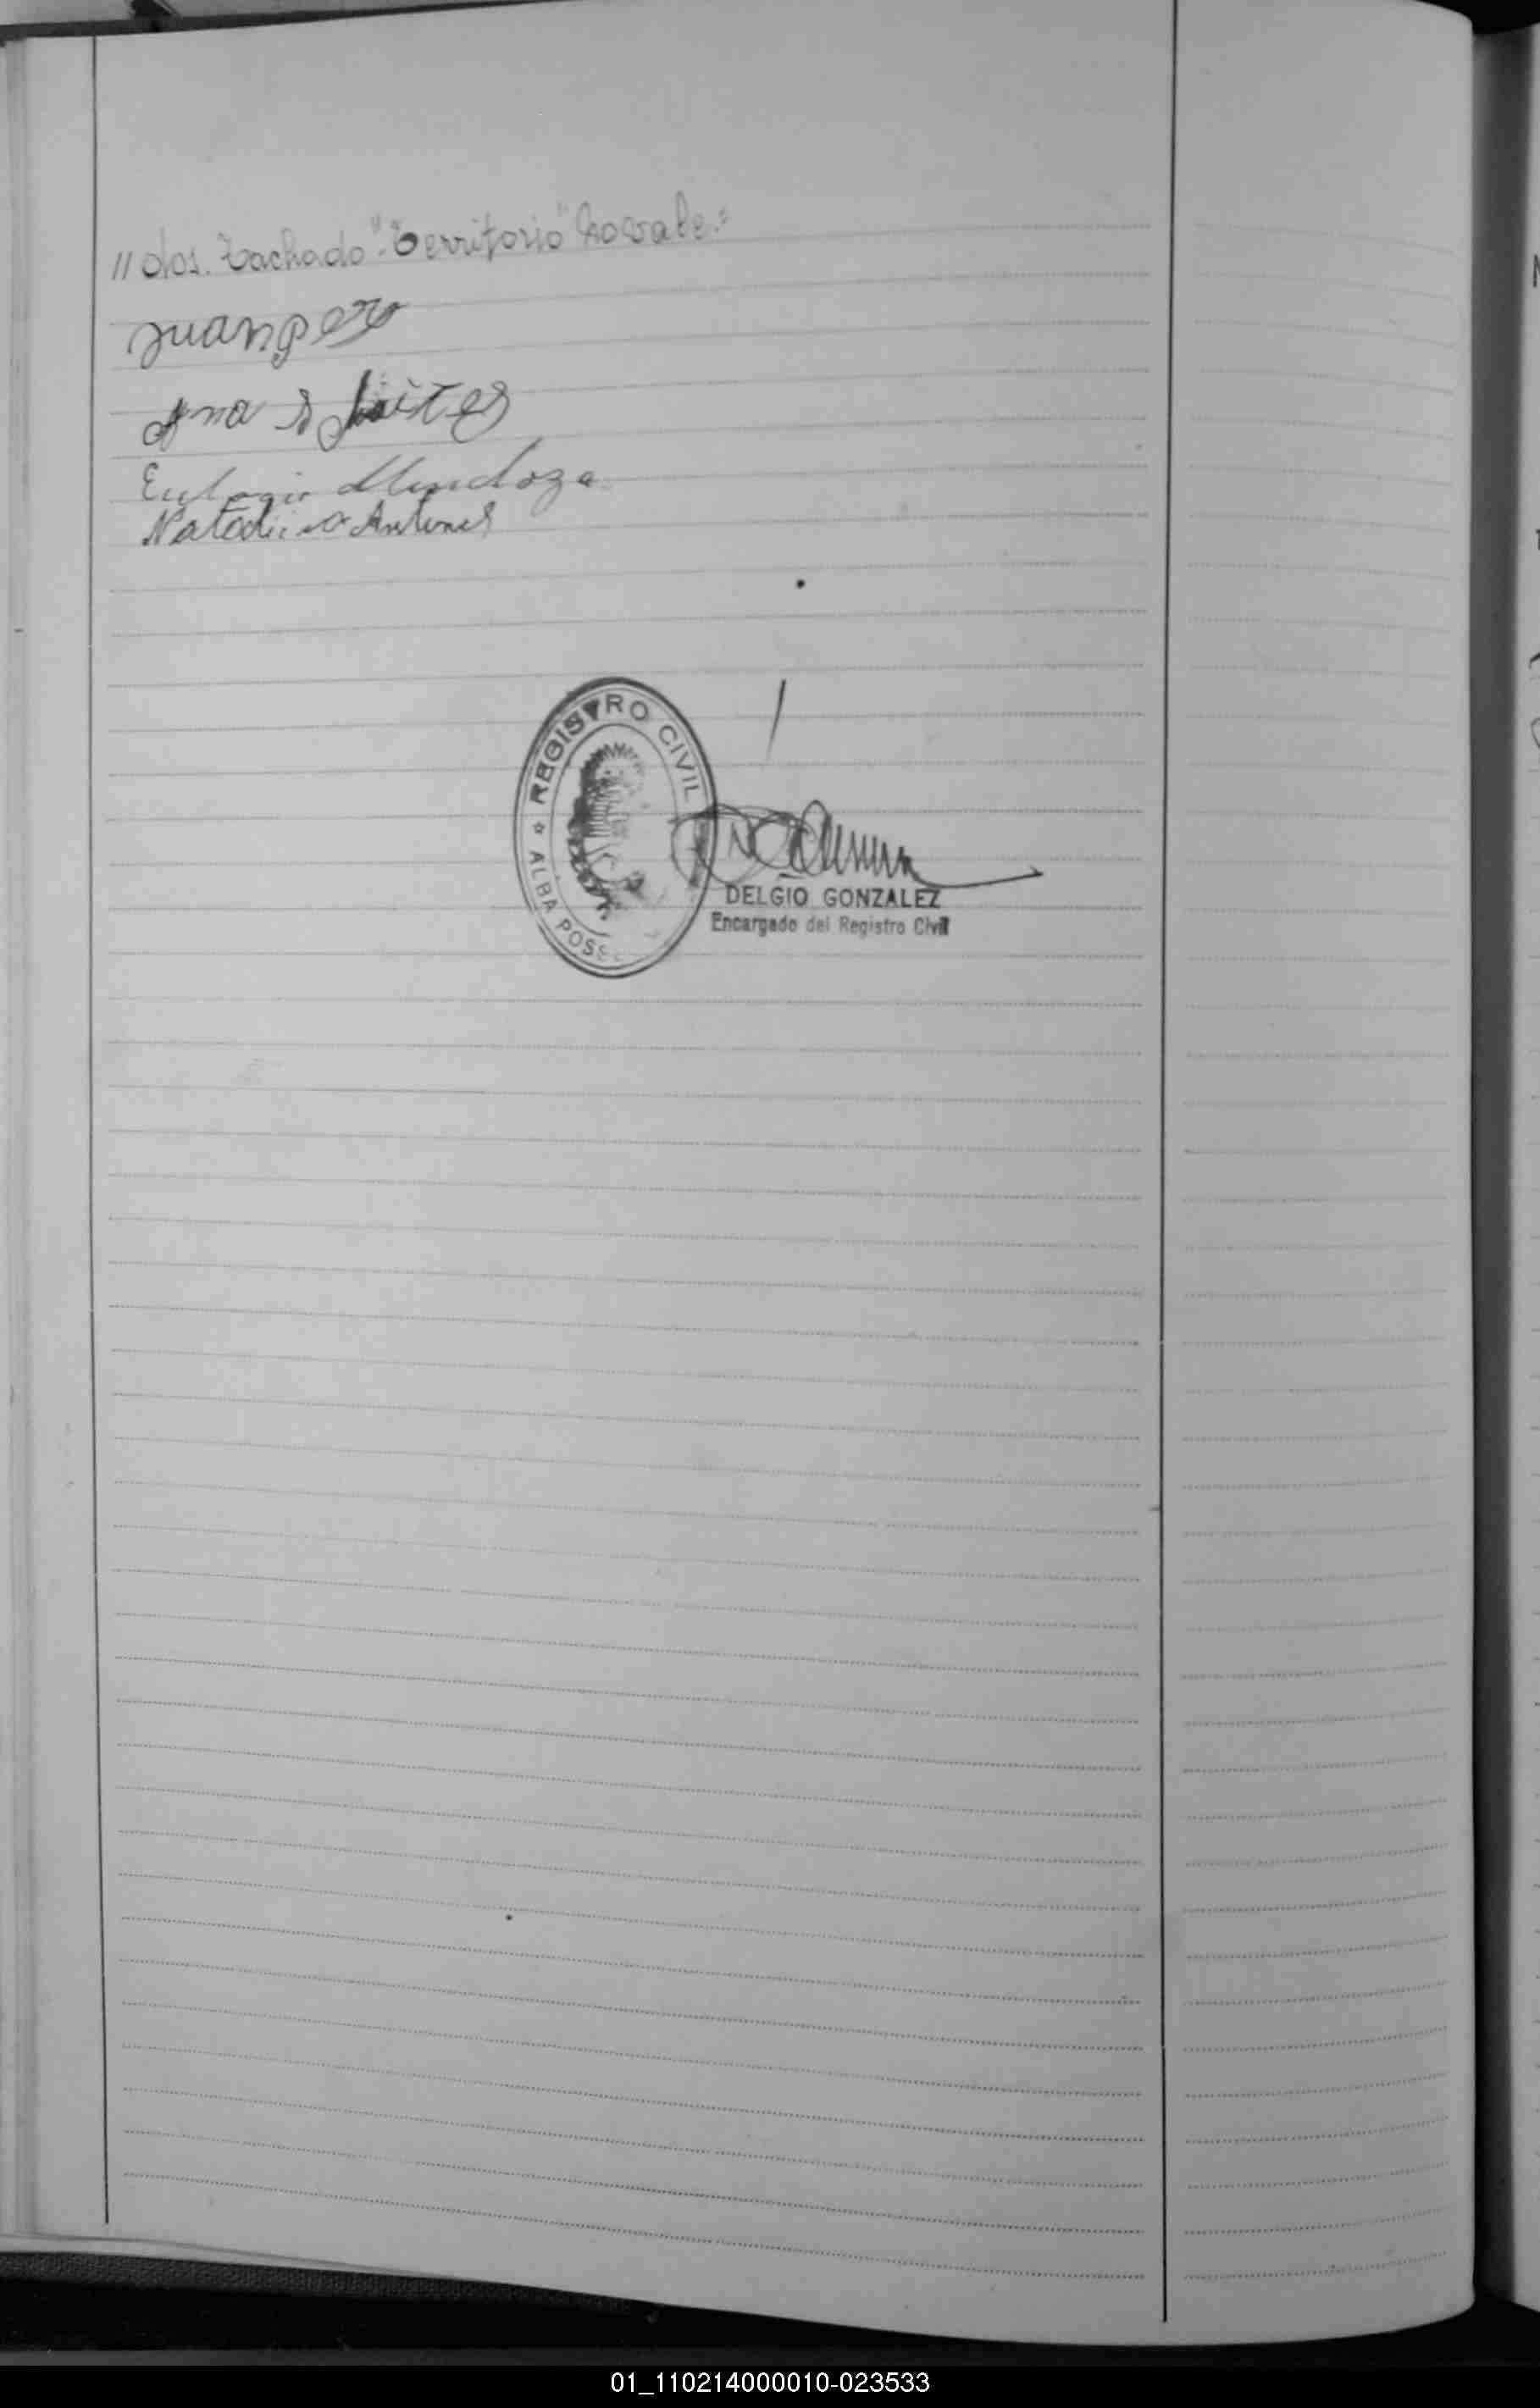 "dos. Tachado "Territorio" no vale.=
Juan
Ana
Eulogio Mendoza
Antunes
REGISTRO CIVIL
* ALBA POSSE
DELGIO GONZALEZ
Encargado del Registro Civil
01_110214000010-023533